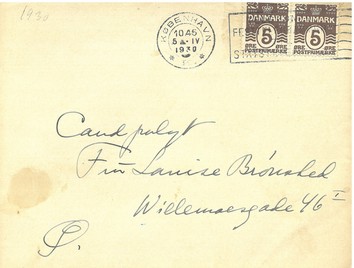 1930
KØBENHAVN
10.45
5.4.-IV
1930
DANMARK
5
ØRE ØRE
POSTFRIMÆRKE
DANMARK
5
ØRE ØRE
POSTFRIMÆRKE
Cand polyt
Louise Brønsted
Willemoesgade 46 I
Ø.